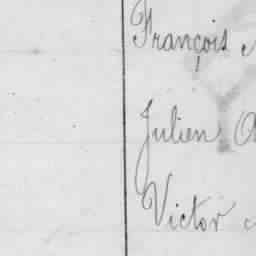 François
Julien
Victor